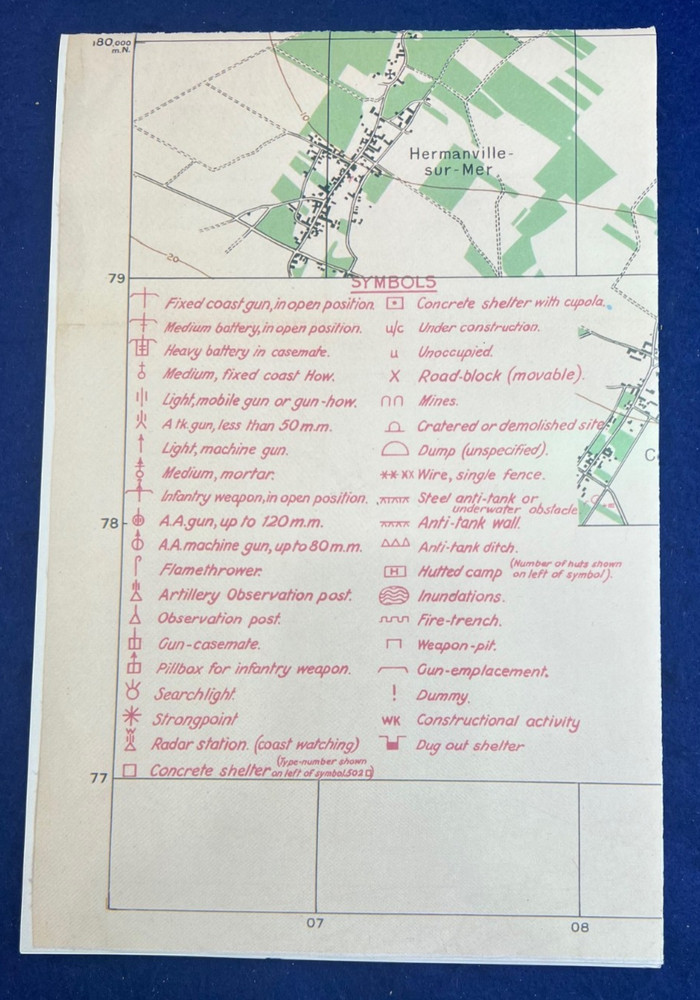 180,000
m.N.
Hermanville-
sur-Mer
20
79
SYMBOLS
Fixed coast gun, in open position.
Medium battery, in open position.
Heavy battery in casemate.
Medium, fixed coast How.
Light, mobile gun or gun-how.
A tk. gun, less than 50 m.m.
Light, machine gun.
Medium, mortar.
Infantry weapon, in open position.
A.A. gun, up to 120 m.m.
A.A. machine gun, up to 80 m.m.
Flamethrower.
Artillery Observation post.
Observation post.
Gun-casemate.
Pillbox for infantry weapon.
Searchlight.
Strongpoint
Radar station. (coast watching)
Concrete shelter (Type-number shown
on left of symbol. 502)
Concrete shelter with cupola.
u/c Under construction.
u Unoccupied.
X Road-block (movable).
Mines.
Cratered or demolished site
Dump (unspecified).
Wire, single fence.
Steel anti-tank or
underwater obstacle
Anti-tank wall.
Anti-tank ditch.
H Hutted camp (Number of huts shown
on left of symbol).
Inundations.
Fire-trench.
Weapon-pit.
Gun-emplacement.
! Dummy.
WK Constructional activity
Dug out shelter
78
77
07
08